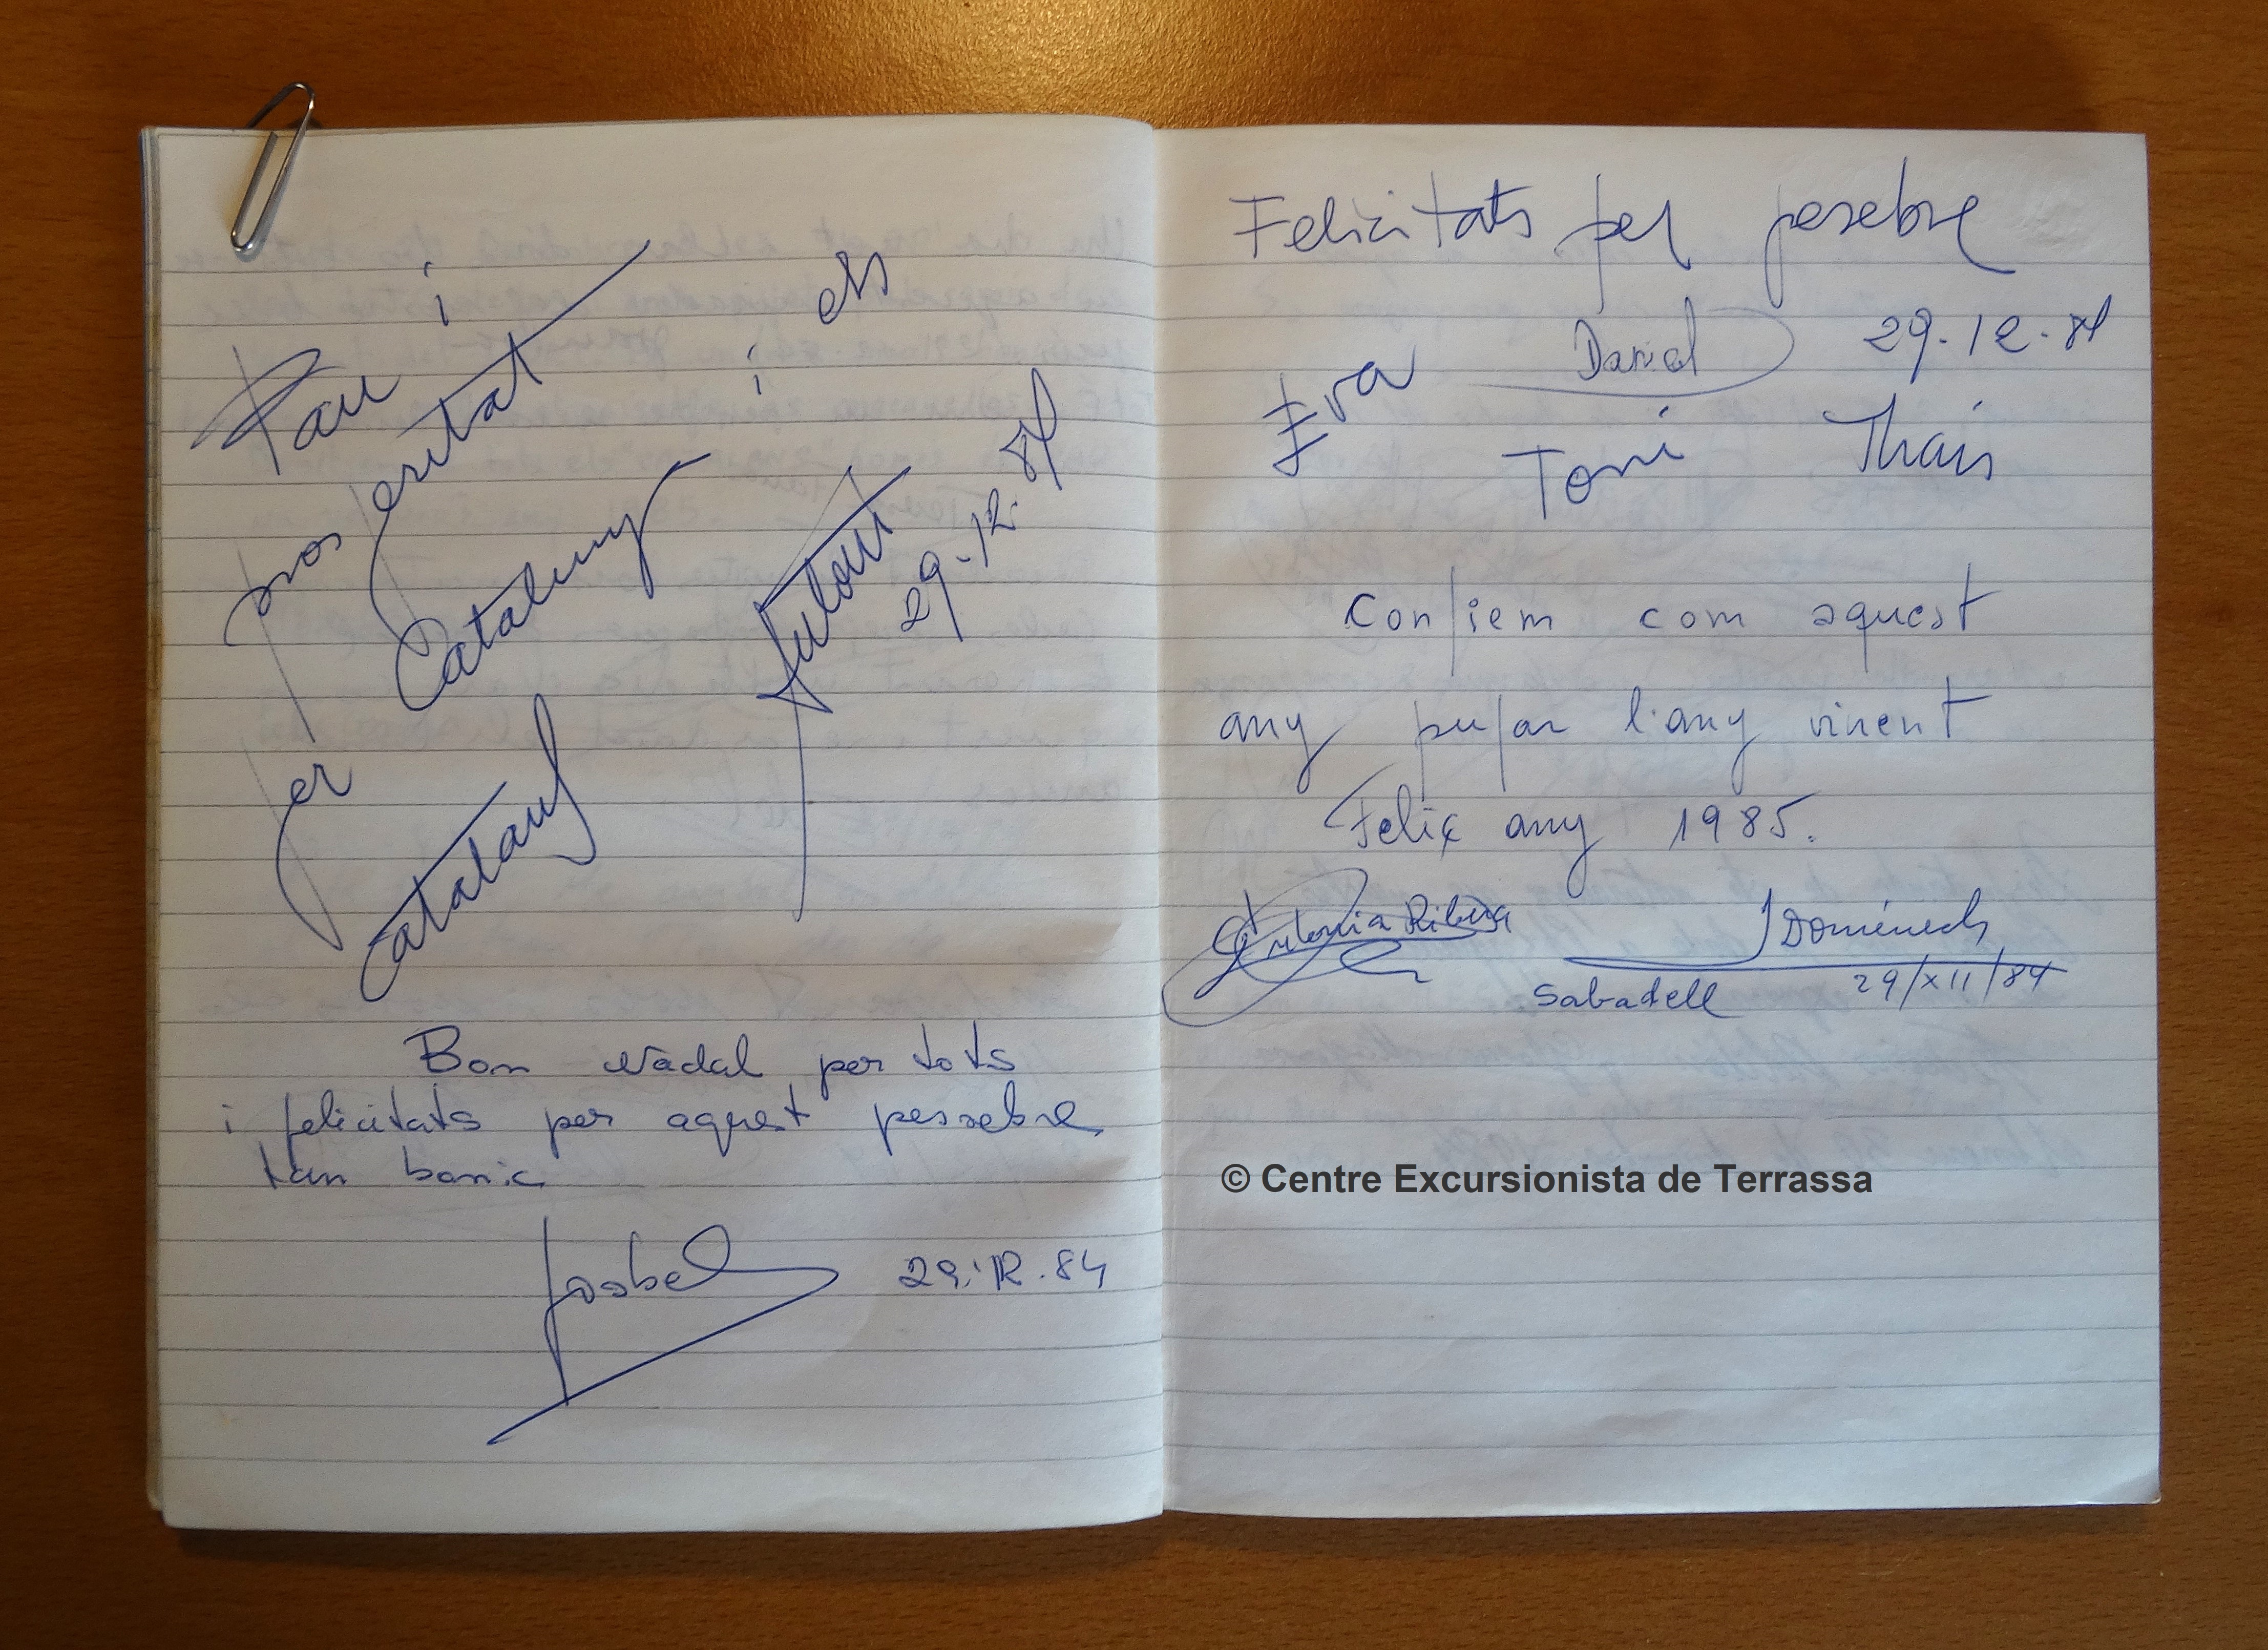 Pau i
prosperitat
per Catalunya i els
catalans
29-12-84
Bon Nadal per tots
i felicitats per aquest pessebre
tan bonic
Isabel 29-12-84
Felicitats pel pesebre
Daniel 29-12-84
Eva Toni Thais
Confiem com aquest
any pujar l'any vinent
Feliç any 1985.
Antonia Ribera J Domènech
Sabadell 29/XII/84
© Centre Excursionista de Terrassa